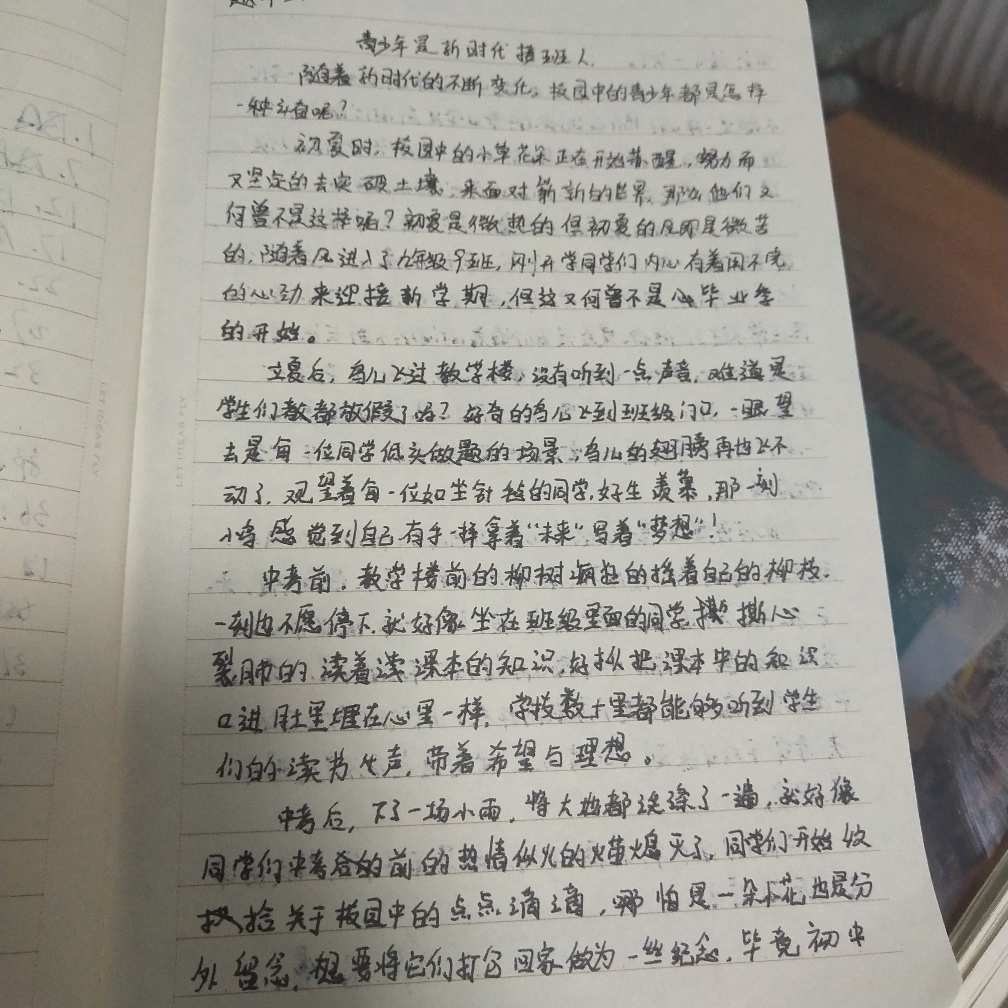 青少年是新时代接班人
随着新时代的不断变化。校园中的青少年都是怎样
一种斗奋呢？
初夏时，校园中的小草花朵正在开始苏醒，努力而
又坚定的去突破土壤，来面对崭新的世界，那么他们又
何曾不是这样呢？初夏是微热的但初夏的风却是微苦
的，随着风进入了九年级9班，刚开学同学们内心有着用不完
的心动来迎接新学期，但这又何曾不是心毕业季
的开始。
立夏后，鸟儿飞过教学楼，没有听到一点声音，难道是
学生们教都放假了吗？好奇的鸟儿飞到班级门口，一眼望
去是每一位同学低头做题的场景，鸟儿的翅膀再也飞不
动了，观望着每一位如坐针毡的同学，好生羡慕，那一刻
小鸟感觉到自己有手一样拿着“未来”写着“梦想”！
中考前，教学楼前的柳树疯狂的摇着自己的柳枝，
一刻也不愿停下，就好像坐在班级里面的同学撕心
裂肺的读着读课本的知识，好似把课本中的知识
口进肚里埋在心里一样，学校数十里都能够听到学生
们的读书生声，带着希望与理想。
中考后，下了一场小雨，将大地都洗涤了一遍，就好像
同学们中考后的前的热情似火的火苗熄灭了，同学们开始收
拾关于校园中的点点滴滴，哪怕是一朵小花也是分
外留念，想要将它们打包回家做为一丝纪念，毕竟初中